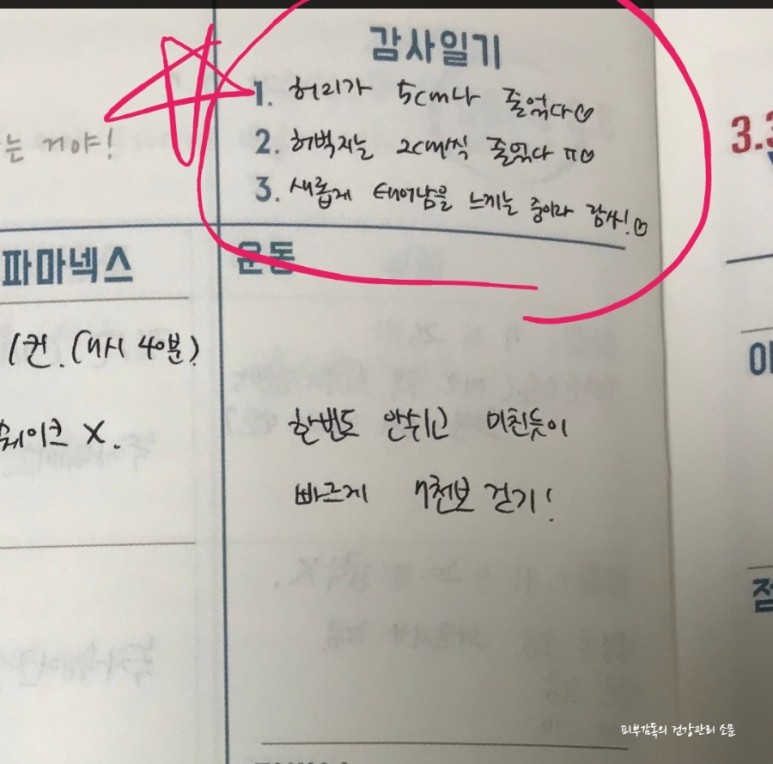 감사일기
1. 허리가 5cm나 줄었다♡
2. 허벅지는 2cm씩 줄었다 ㅠ♡
3. 새롭게 태어남을 느끼는 중이라 감사!♡
는 거야!
3.3
파마넥스
운동
1컨. (11시 40분)
쉐이크 X.
한번도 안쉬고 미친듯이
빠르게 7천보 걷기!
점
피부감독의 건강관리 소문